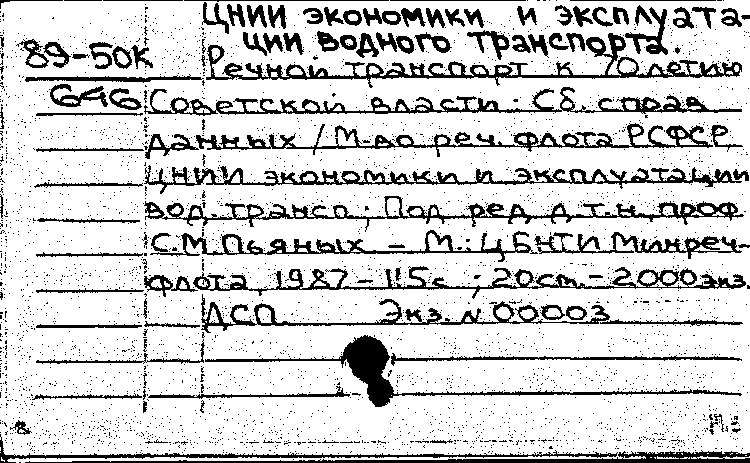 ЦНИИ экономики и эксплуата-
ции водного транспорта.
89-50К Речной транспорт к 70летию
646 Советской власти: Сб. справ
данных / М-во реч. флота РСФСР
ЦНИИ экономики и эксплуатации
вод. трансп; Под ред д.т.н., проф
С.М.Пьяных – М.: ЦБНТИ Минреч-
флота, 1987 – 115с ; 20см. – 2000экз.
ДСП. Экз. № 00003